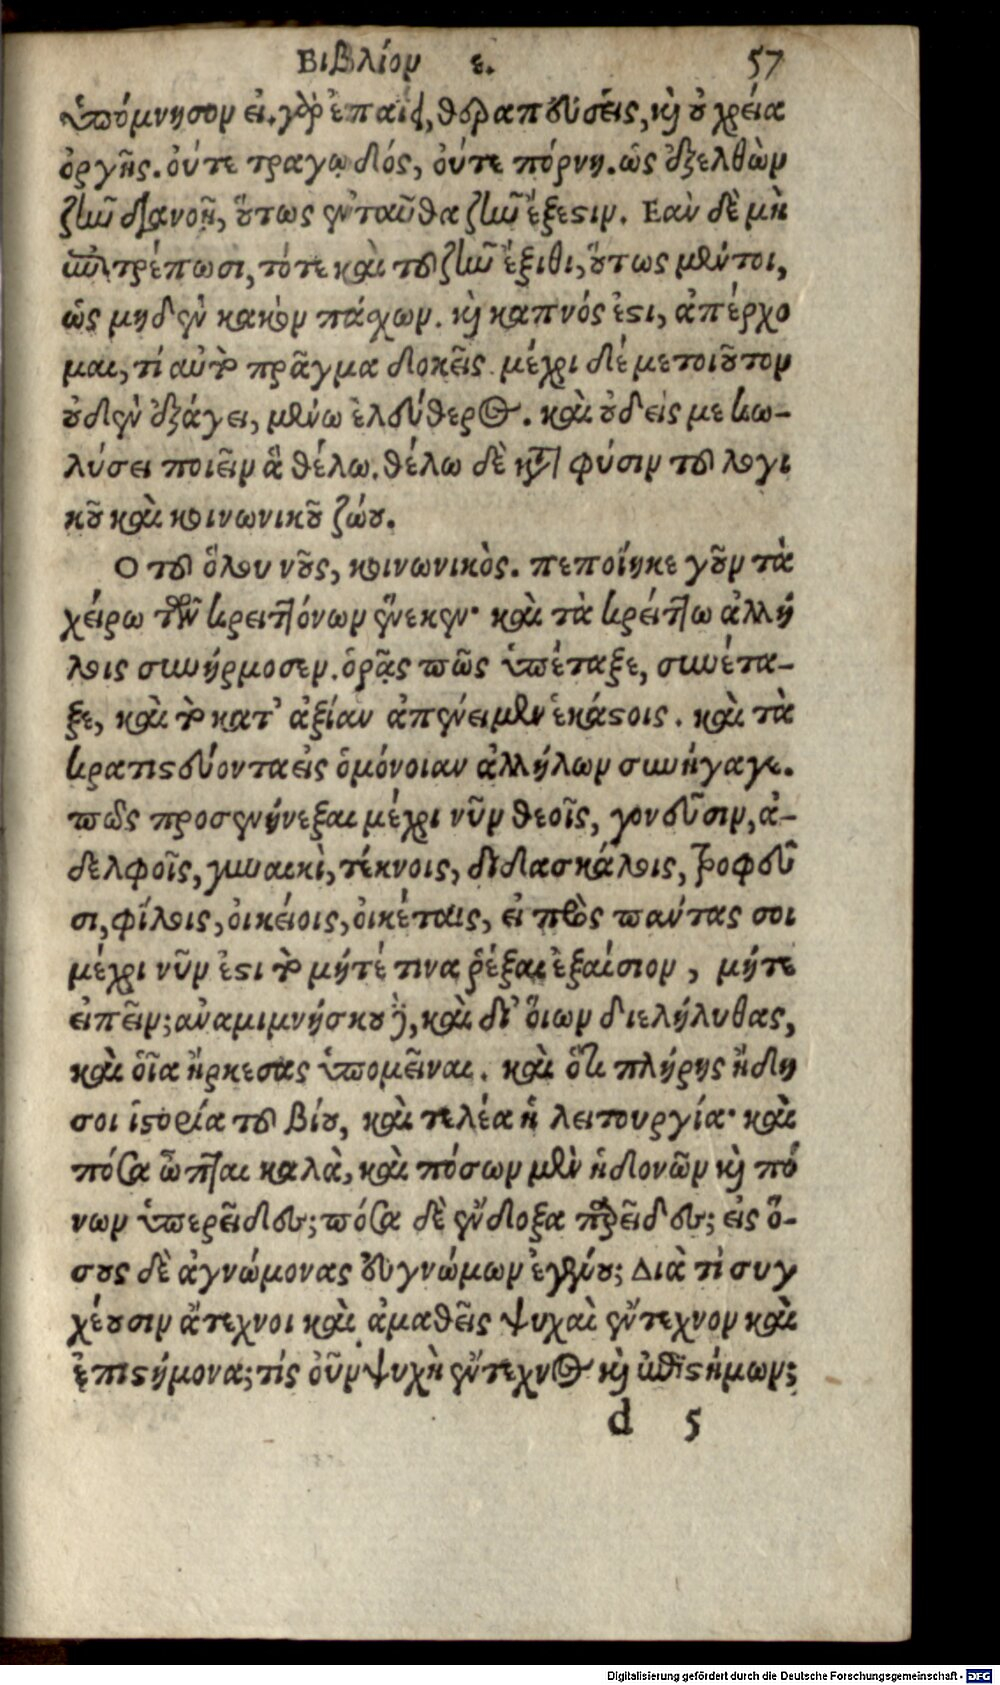 Βιβλίον ε. 57
ὑπόμνησον εἰ. γὰρ ἐπαΐει, θεραπεύσεις, καὶ οὐ χρεία
ὀργῆς. οὔτε τραγῳδός, οὔτε πόρνη. ὡς ἐξελθὼν
ζῆν διανοῇ, οὕτως ἐνταῦθα ζῆν ἔξεστιν. Εαν δὲ μὴ
ἐπιτρέπωσι, τότε καὶ τοῦ ζῆν ἔξιθι, οὕτως μέντοι,
ὡς μηδὲν κακὸν πάχων. καὶ καπνός ἐστι, ἀπέρχο
μαι, τί αὐτὸ πρᾶγμα δοκεῖς. μέχρι δέ με τοιοῦτον
οὐδὲν ἐξάγει, μένω ἐλεύθερος. καὶ οὐδείς με κω-
λύσει ποιεῖν ἃ θέλω. θέλω δὲ κατὰ φύσιν τοῦ λογι
κοῦ καὶ κοινωνικοῦ ζώου.
Ο τοῦ ὅλου νοῦς, κοινωνικὸς. πεποίηκε γοῦν τὰ
χείρω τῶν κρειττόνων ἕνεκεν· καὶ τὰ κρείττω ἀλλή
λοις συνήρμοσεν. ὁρᾷς πῶς ὑπέταξε, συνέτα-
ξε, καὶ τὸ κατ' ἀξίαν ἀπένειμεν ἑκάστοις. καὶ τὰ
κρατιστεύοντα εἰς ὁμόνοιαν ἀλλήλων συνήγαγε.
πῶς προσενήνεξαι μέχρι νῦν θεοῖς, γονεῦσιν, ἀ-
δελφοῖς, γυναικὶ, τέκνοις, διδασκάλοις, τροφεῦ
σι, φίλοις, οἰκείοις, οἰκέταις, εἰ πρὸς πάντας σοι
μέχρι νῦν ἐστι τὸ μήτέ τινα ῥέξαι ἐξαίσιον, μήτε
εἰπεῖν; ἀναμιμνήσκου δὲ, καὶ δι' οἵων διελήλυθας,
καὶ οἷα ἤρκεσας ὑπομεῖναι. καὶ ὅτι πλήρης ἤδη
σοι ἱστορία τοῦ βίου, καὶ τελέα ἡ λειτουργία· καὶ
πόσα ὦπται καλὰ, καὶ πόσων μὲν ἡδονῶν καὶ πό
νων ὑπερεῖδες; πόσα δὲ ἔνδοξα παρεῖδες; εἰς ὅ-
σους δὲ ἀγνώμονας εὐγνώμων ἐγένου; Διὰ τί συγ
χέουσιν ἄτεχνοι καὶ ἀμαθεῖς ψυχαὶ ἔντεχνον καὶ
ἐπιστήμονα; τίς οὖν ψυχὴ ἔντεχνος καὶ ἐπιστήμων;
d 5
Digitalisierung gefördert durch die Deutsche Forschungsgemeinschaft - DFG